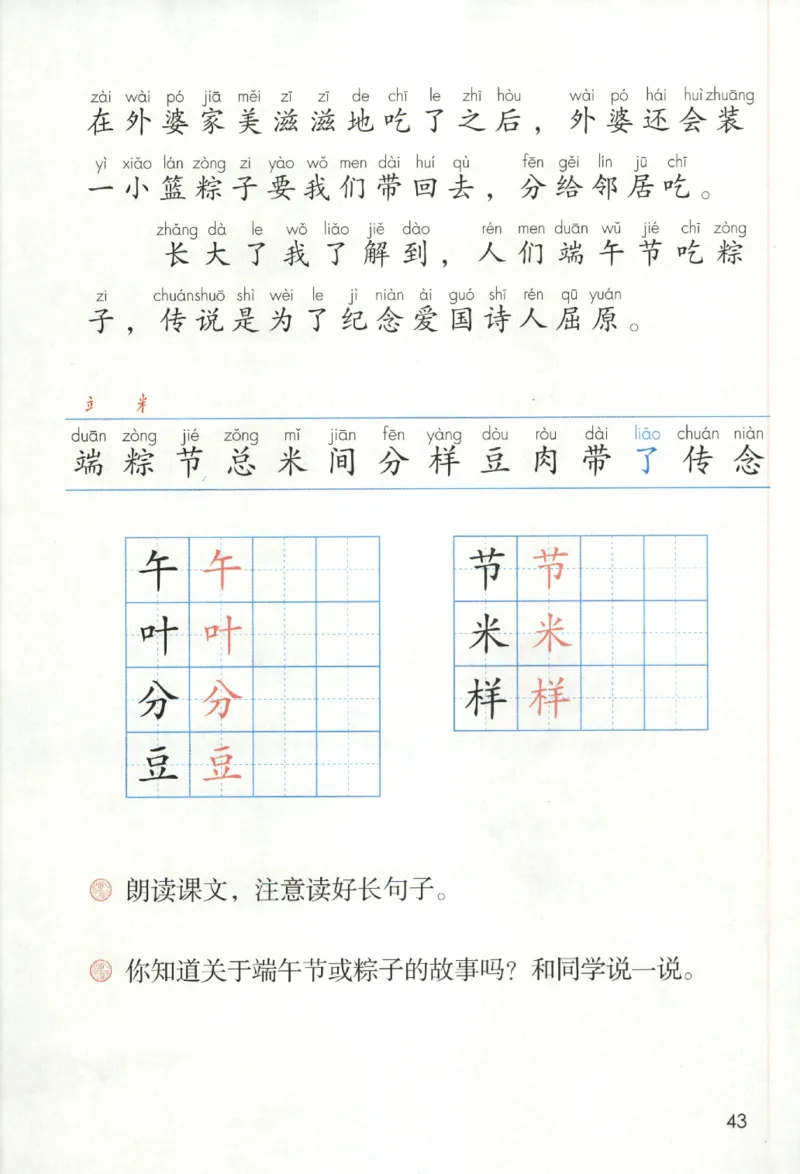 zài wài pó jiā měi zī zī de chī le zhī hòu wài pó hái huì zhuāng
在外婆家美滋滋地吃了之后，外婆还会装
yì xiǎo lán zòng zi yào wǒ men dài huí qù fēn gěi lín jū chī
一小篮粽子要我们带回去，分给邻居吃。
zhǎng dà le wǒ liǎo jiě dào rén men duān wǔ jié chī zòng
长大了我了解到，人们端午节吃粽
zi chuán shuō shì wèi le jì niàn ài guó shī rén qū yuán
子，传说是为了纪念爱国诗人屈原。
立 米
duān zòng jié zǒng mǐ jiān fēn yàng dòu ròu dài liǎo chuán niàn
端 粽 节 总 米 间 分 样 豆 肉 带 了 传 念
午 午 节 节
叶 叶 米 米
分 分 样 样
豆 豆
朗读课文，注意读好长句子。
你知道关于端午节或粽子的故事吗？和同学说一说。
43